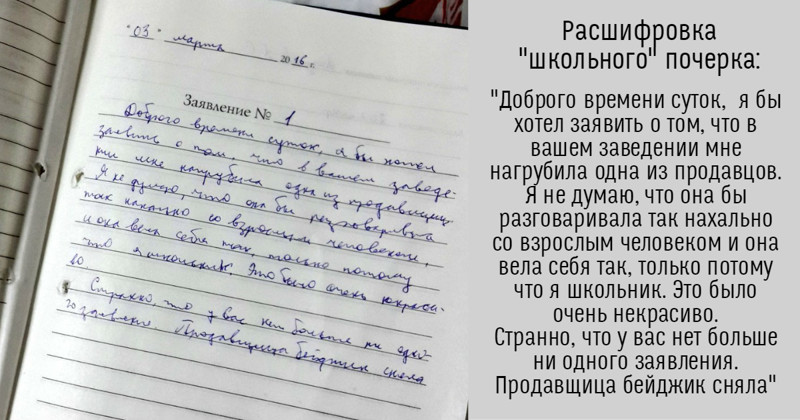 "03" марта 2016 г.
Заявление № 1
Доброго времени суток, я бы хотел
заявить о том, что в вашем заведе-
нии мне нагрубила одна из продавщиц.
Я не думаю, что она бы разговаривала
так нахально со взрослым человеком,
и она вела себя так, только потому
что я школьник. Это было очень некраси-
во
Странно, что у вас нет больше ни одно-
го заявления. Продавщица бейджик сняла
Расшифровка
"школьного" почерка:
"Доброго времени суток, я бы
хотел заявить о том, что в
вашем заведении мне
нагрубила одна из продавцов.
Я не думаю, что она бы
разговаривала так нахально
со взрослым человеком и она
вела себя так, только потому
что я школьник. Это было
очень некрасиво.
Странно, что у вас нет больше
ни одного заявления.
Продавщица бейджик сняла"